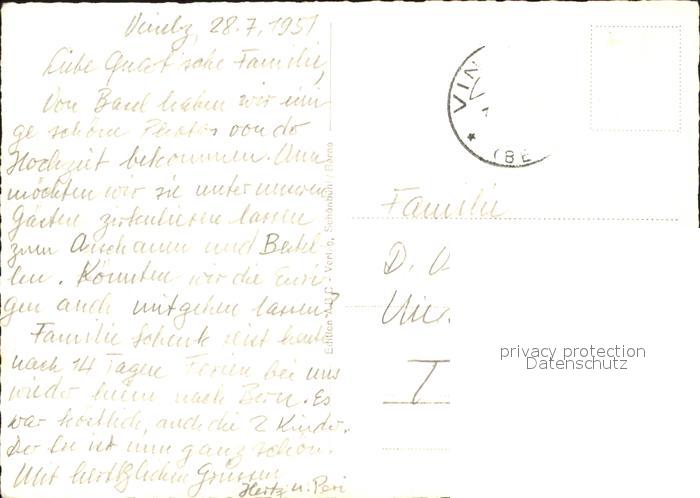 Vinelz, 28.7.1951
Liebe Familie,
Von Basel haben wir eini-
ge schöne Photos von der
Hochzeit bekommen. Nun
möchten wir sie unter unseren
Gästen zirkulieren lassen
zum Anschauen und Bestel-
len. Könnten wir die Euri-
gen auch mitgehen lassen?
Familie Schenk reist heute
nach 14 Tagen Ferien bei uns
wieder heim nach Bern. Es
war köstlich, auch die 2 Kinder.
Der See ist nun ganz schön.
Mit herzlichen Grüssen
Hertz u. Peri
Edition A.B.C. - Verlag, Schönbühl / Berne
VIN
(BE
Familie
D.
privacy protection
Datenschutz